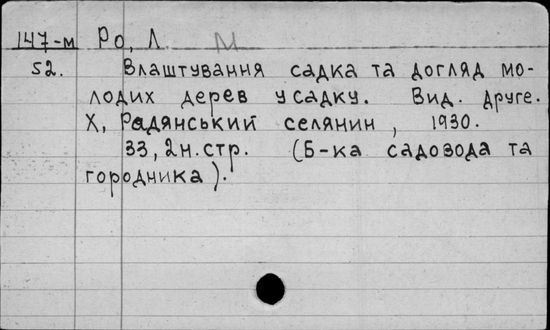 147-м Ро, Л. М
52. Влаштування садка та догляд мо-
лодих дерев у садку. Вид. друге.
Х, Радянський селянин, 1930.
33, 2н.стр. (Б-ка садовода та
городника).